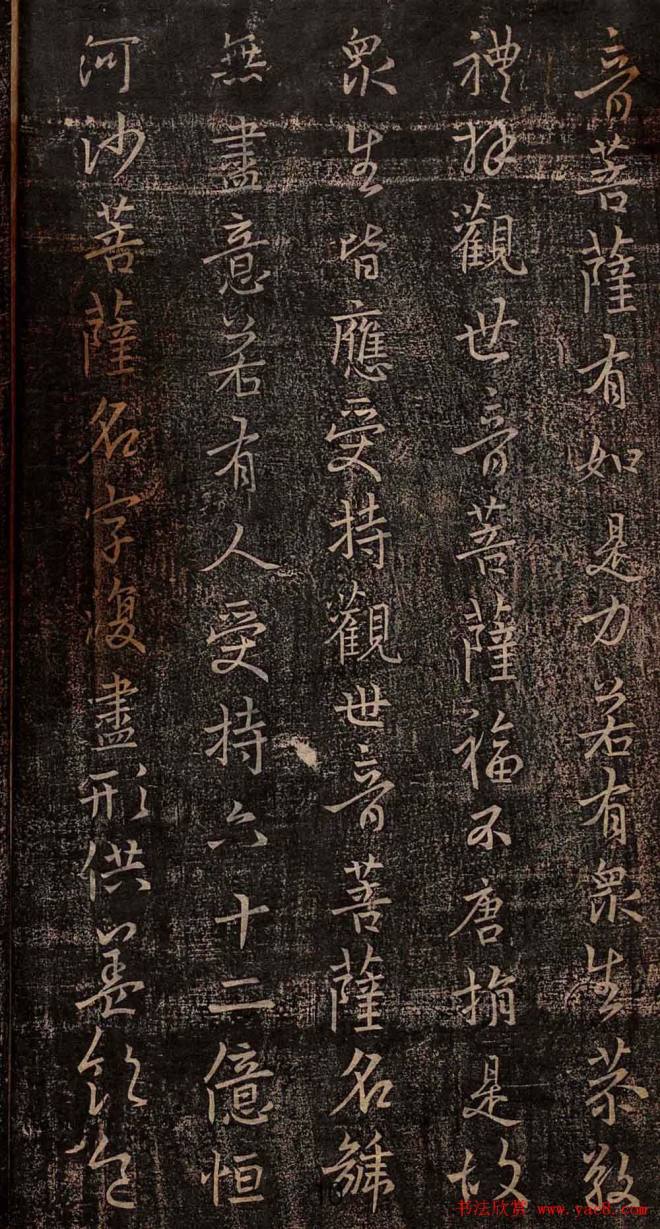 音菩薩有如是力若有衆生恭敬
禮拜觀世音菩薩福不唐捐是故
衆生皆應受持觀世音菩薩名號
無盡意若有人受持六十二億恒
河沙菩薩名字復盡形供養飲食
书法欣赏 www.yac8.com